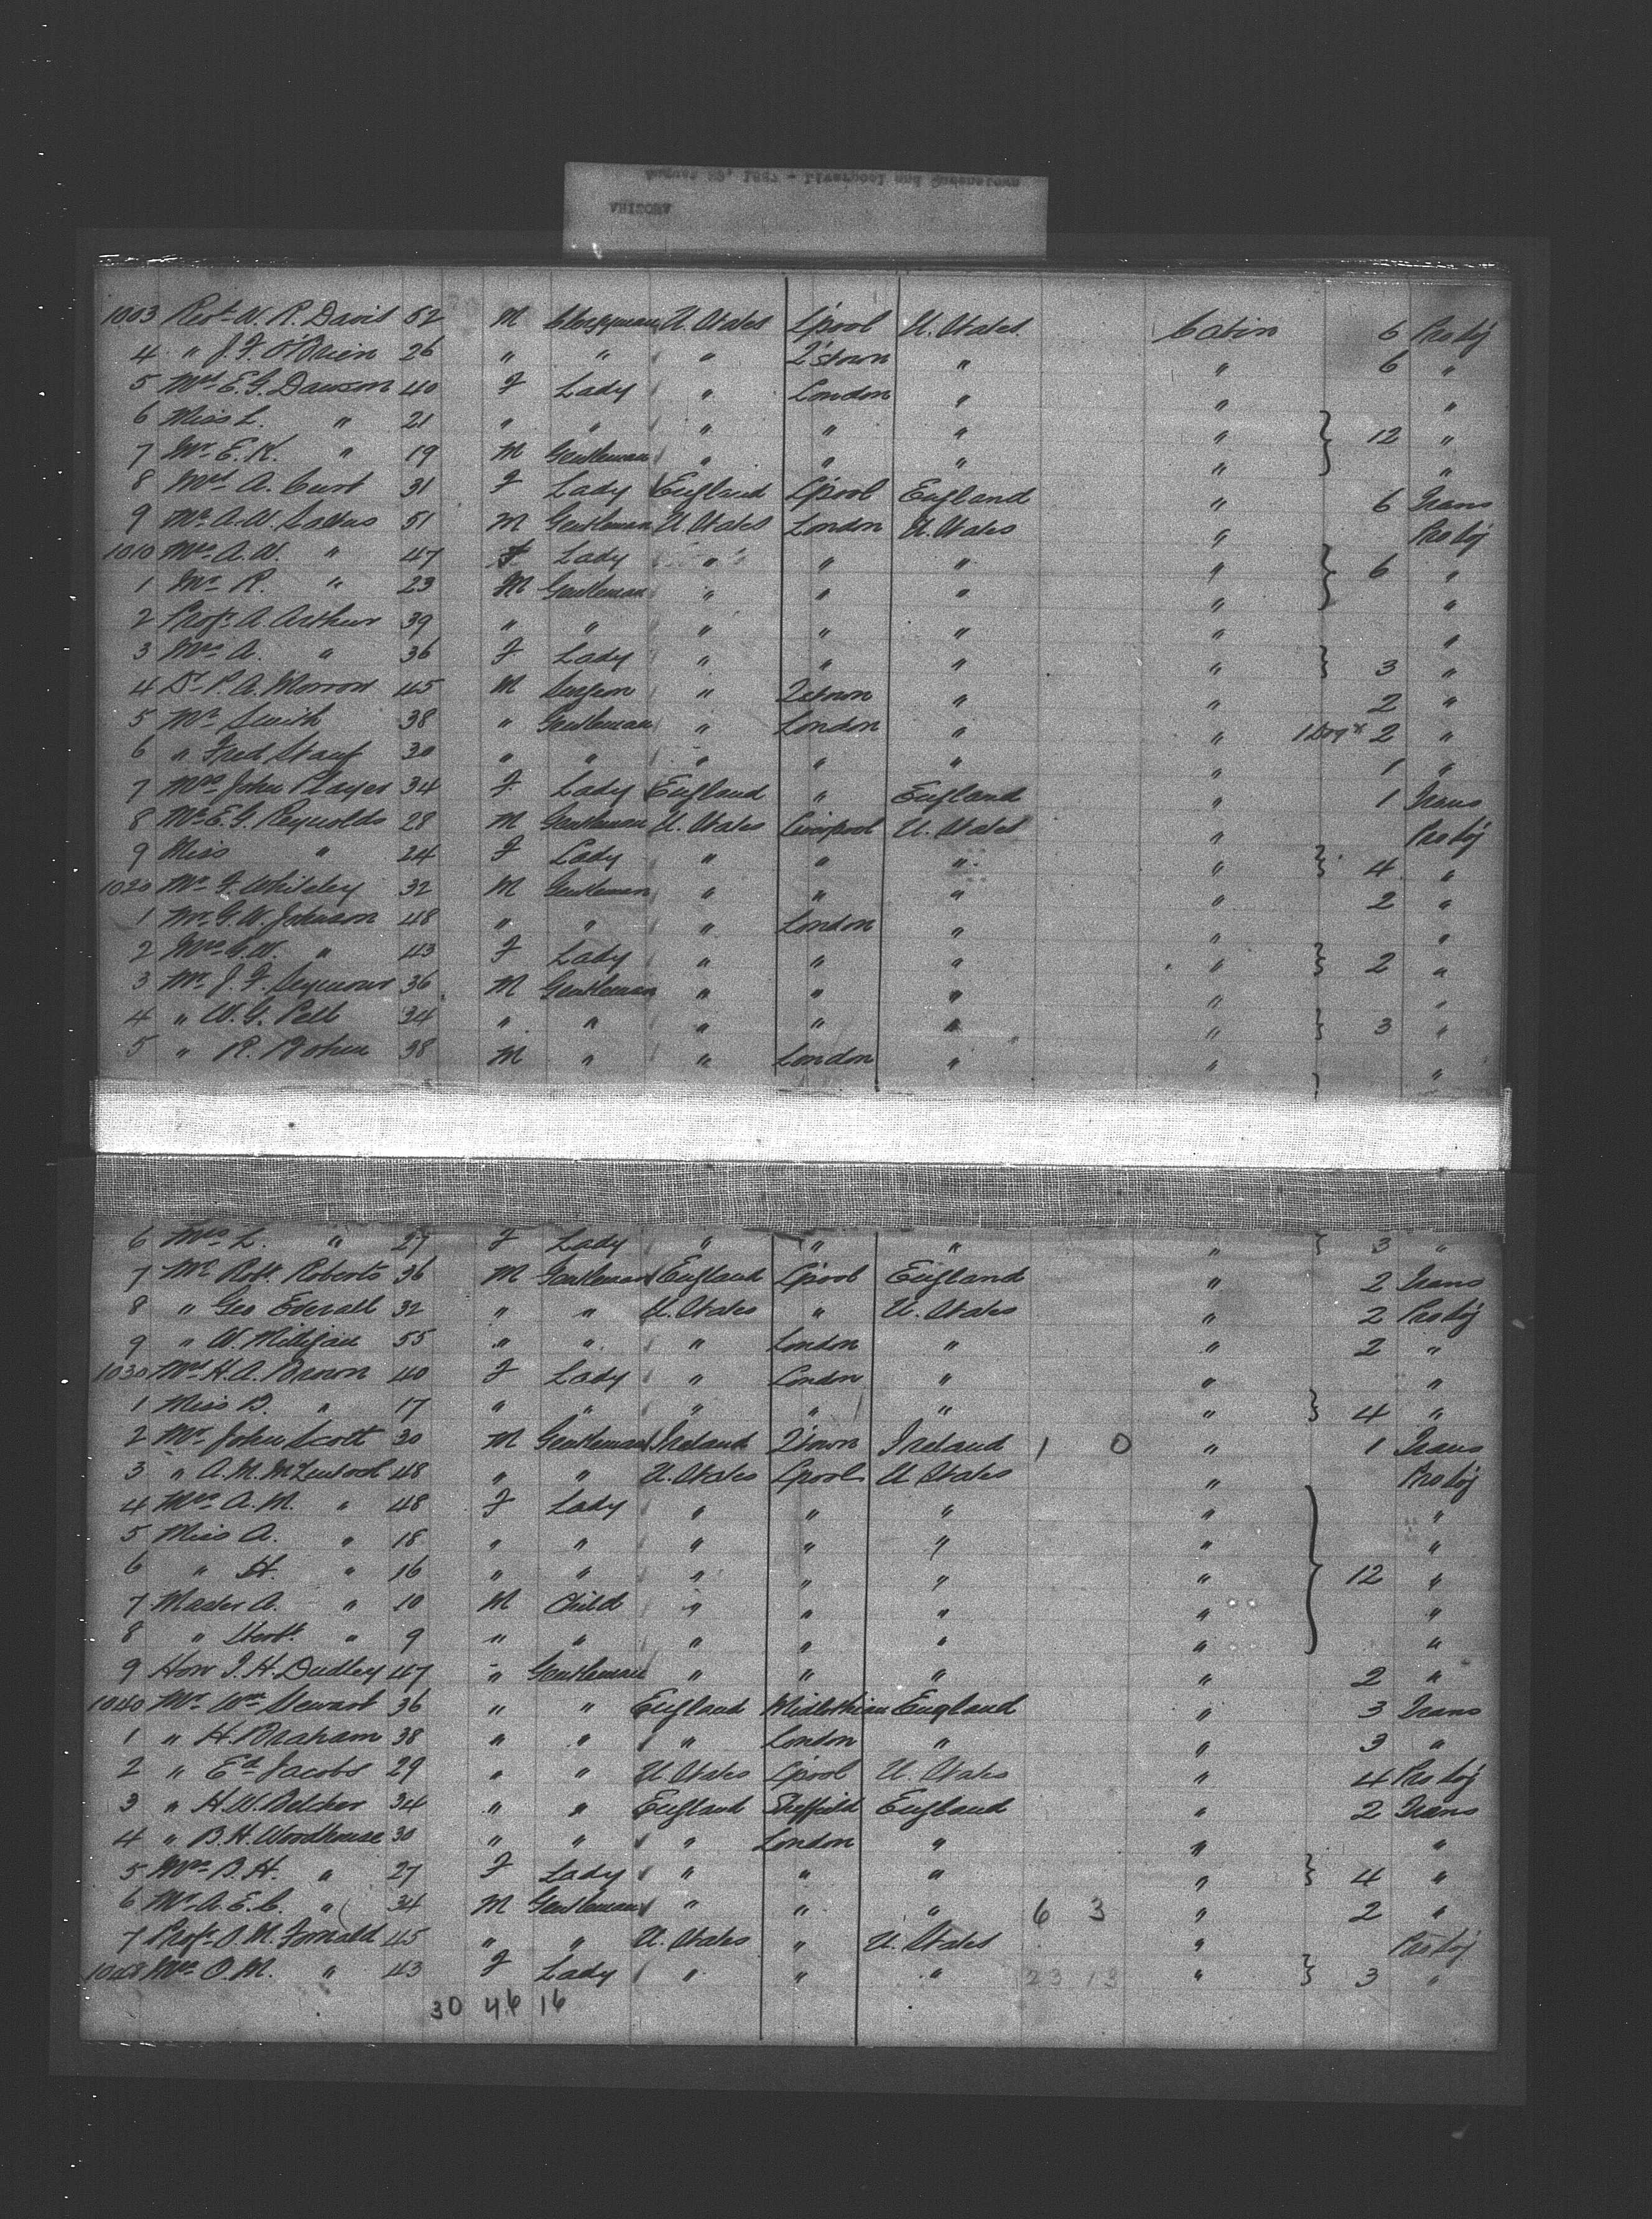 August 29, 1887 - Liverpool and Queenstown
UMBRIA
1003 Revd W. R. Davis 52 M Clergyman U. States L'pool U. States Cabin 6 Pro Soj
4 " J. F. O'Brien 26 " " " Q'stown " " 6 "
5 Mrs E. G. Dawson 40 F Lady " London " " "
6 Miss L. " 21 " " " " " " 12 "
7 Mr E. K. " 19 M Gentleman " " " " "
8 Mrs A. Curt 31 F Lady England L'pool England " 6 Trans
9 Mr A. W. Saltus 51 M Gentleman U. States London U. States " Pro Soj
1010 Mrs A. W. " 47 F Lady " " " " 6 "
1 Mr R. " 23 M Gentleman " " " " "
2 Profr A. Arthur 39 " " " " " " "
3 Mrs A. " 36 F Lady " " " " 3 "
4 Dr P. A. Morrow 45 M Surgeon " Q'stown " " 2 "
5 Mr Smith 38 " Gentleman " London " " 1 Dog & 2 "
6 " Fred Stauf 30 " " " " " " 1 "
7 Mrs John Player 34 F Lady England " England " 1 Trans
8 Mr E. G. Reynolds 28 M Gentleman U. States Liverpool U. States " Pro Soj
9 Miss " 24 F Lady " " " " 4 "
1020 Mr F. Whiteley 32 M Gentleman " " " " 2 "
1 Mr G. W. Johnson 48 " " " London " " "
2 Mrs G. W. " 43 F Lady " " " " 2 "
3 Mr J. F. Seymour 36 M Gentleman " " " " "
4 " W. G. Pell 34 " " " " " " 3 "
5 " R. Bohen 38 M " " London " " "
6 Mrs L. " 27 F Lady " " " " 3 "
7 Mr Robt Roberts 36 M Gentleman England L'pool England " 2 Trans
8 " Geo Everall 32 " " U. States " U. States " 2 Pro Soj
9 " W. Milligan 55 " " " London " " 2 "
1030 Mrs H. A. Brown 40 F Lady " London " " "
1 Miss B. " 17 " " " " " " 4 "
2 Mr John Scott 30 M Gentleman Ireland Q'town Ireland 1 0 " 1 Trans
3 " A. M. 48 " " U. States L'pool U. States " Pro Soj
4 Mrs A. M. " 48 F Lady " " " " "
5 Miss A. " 18 " " " " " " "
6 " H. " 16 " " " " " " 12 "
7 Master A. " 10 M Child " " " " "
8 " Herbt " 9 " " " " " " "
9 Hon T. H. Dudley 47 " Gentleman " " " " 2 "
1040 Mr Wm Stewart 36 " " England Midlothian England " 3 Trans
1 " H. Braham 38 " " " London " " 3 "
2 " Ed Jacobs 29 " " U. States L'pool U. States " 4 Pro Soj
3 " H. W. Belcher 34 " " England Sheffield England " 2 Trans
4 " B. H. Woodhouse 30 " " " London " " "
5 Mrs B. H. " 27 F Lady " " " " 4 "
6 Mr A. E. C. " 34 M Gentleman " " " 6 3 " 2 "
7 Profr O. M. Fernald 45 " " U. States " U. States " Pro Soj
1048 Mrs O. M. " 43 F Lady " " " 23 13 " 3 "
30 46 16